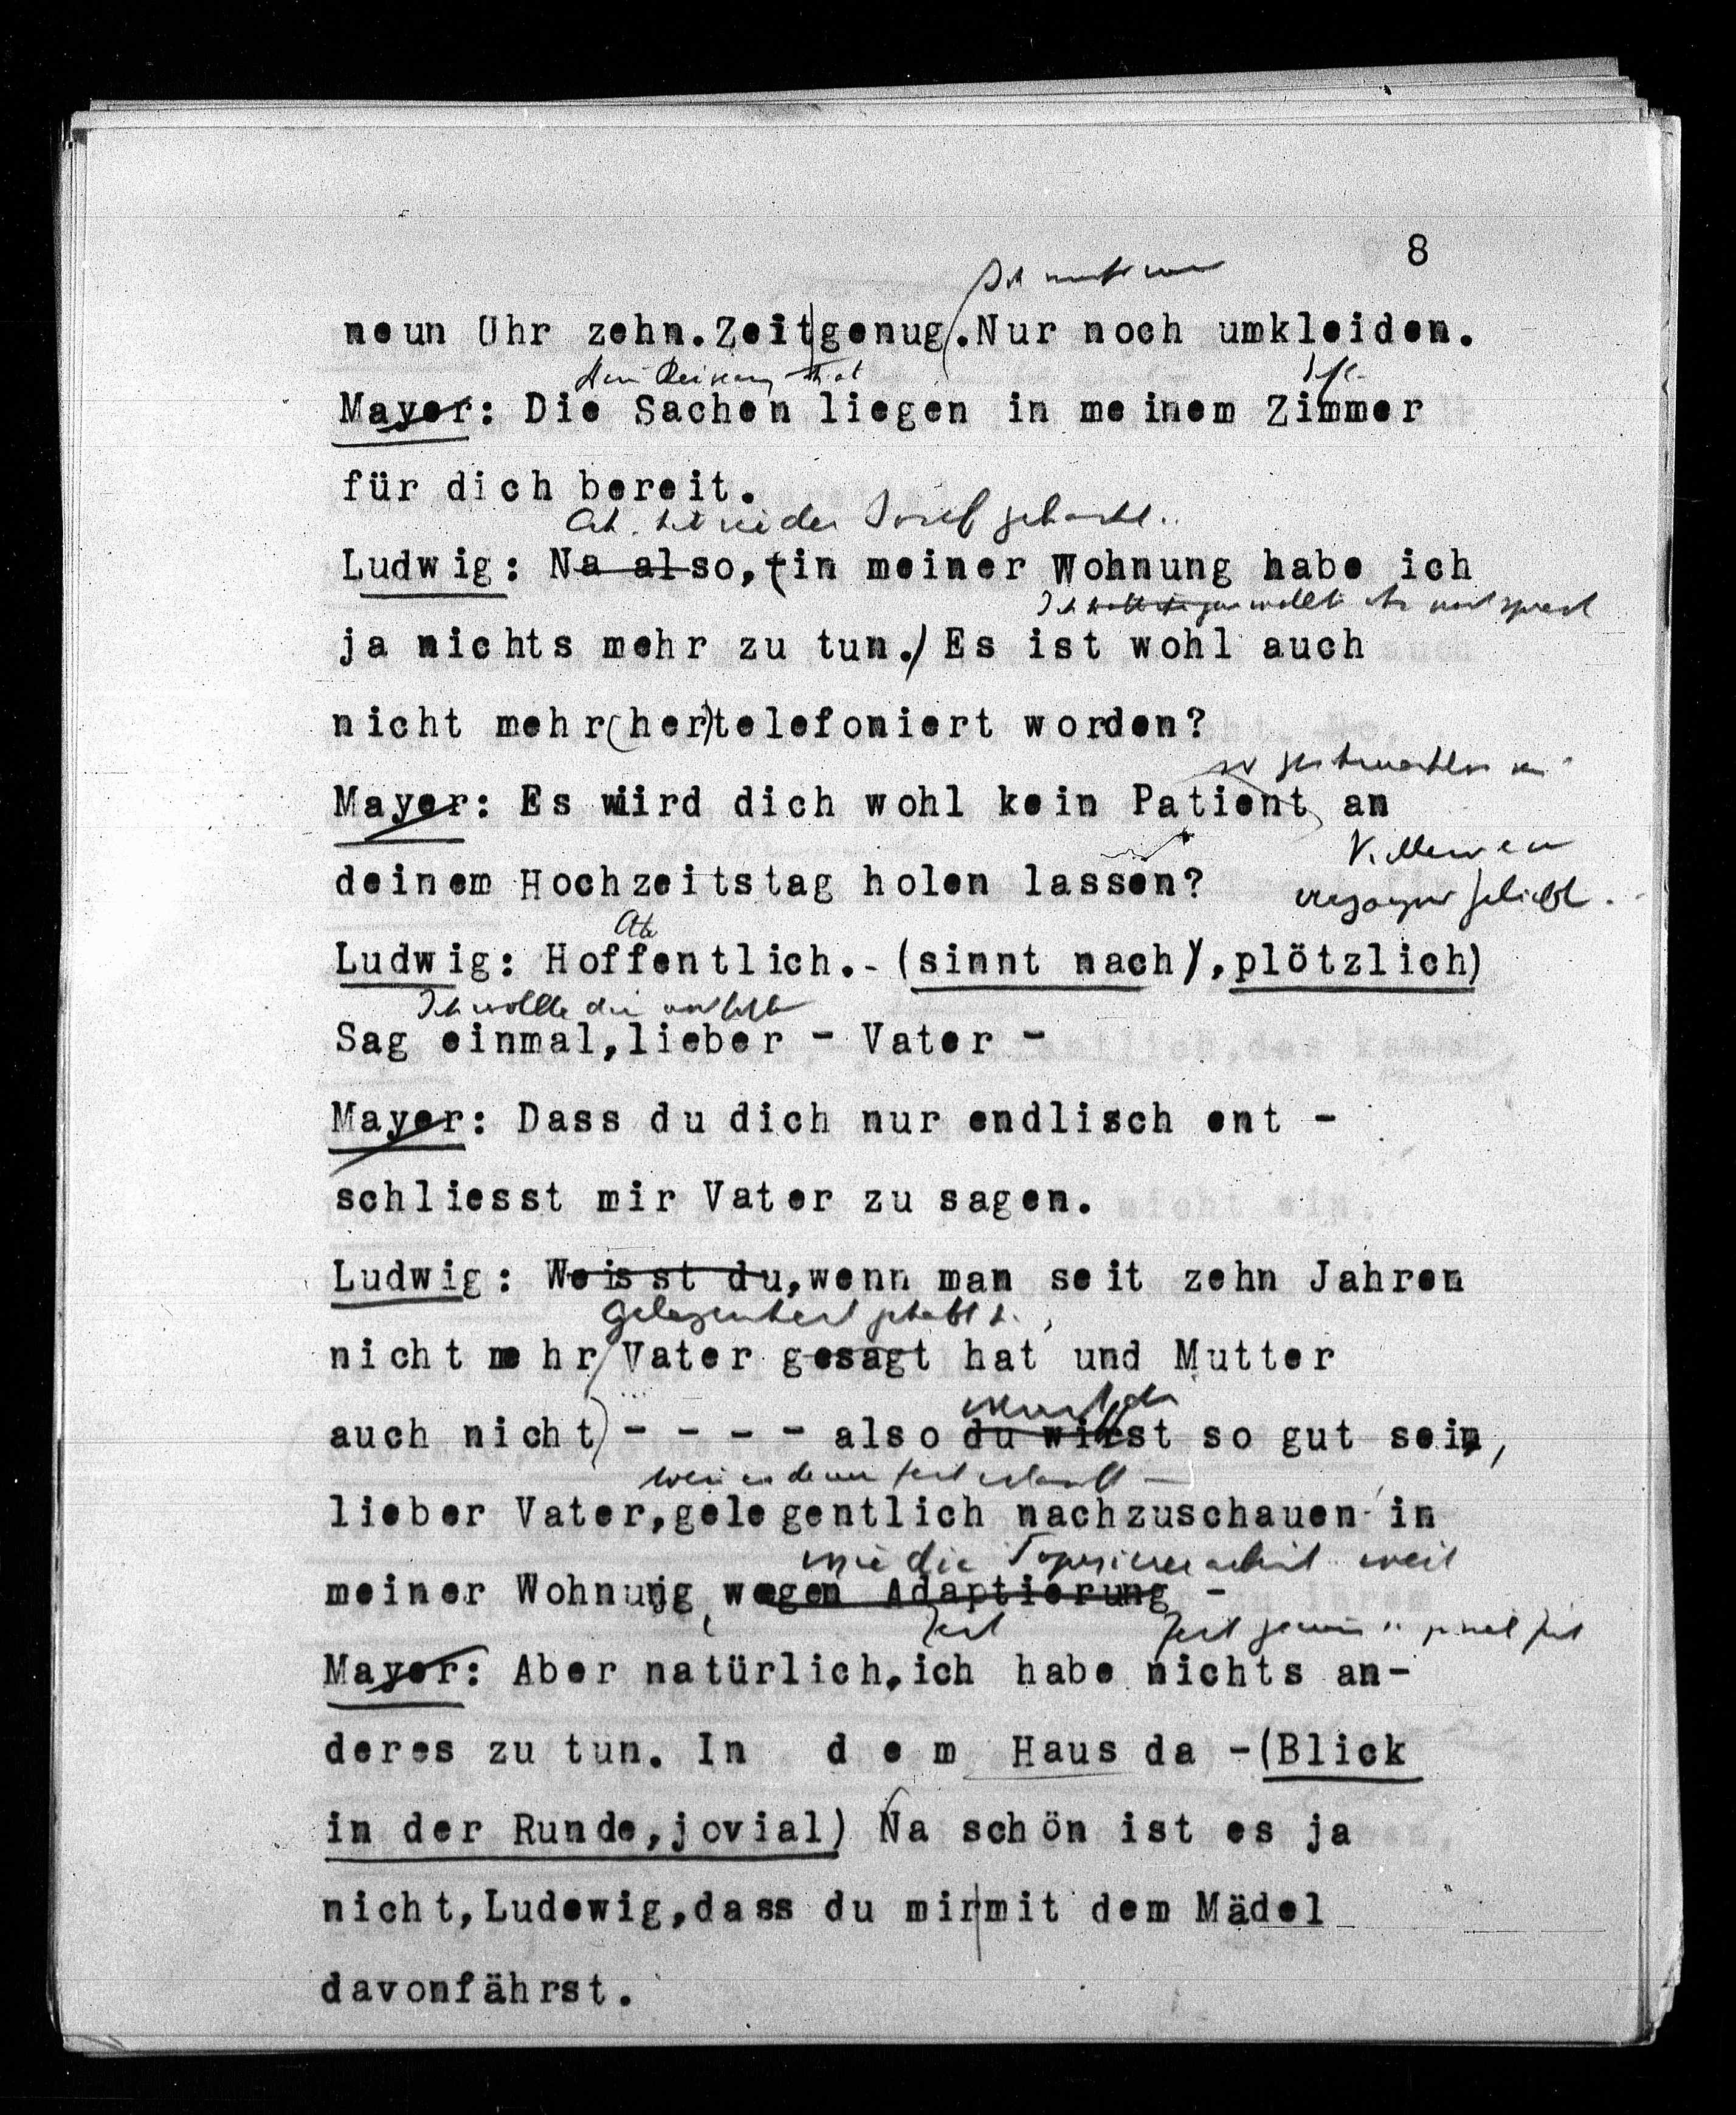 8
neun Uhr zehn.Zeit genug.Nur noch umkleiden.
Mayer: Die Sachen liegen in meinem Zimmer
für dich bereit.
gebracht..
Ludwig: Na also, in meiner Wohnung habe ich
ja nichts mehr zu tun.) Es ist wohl auch
nicht mehr(her)telefoniert worden?
Mayer: Es wiird dich wohl kein Patient an
deinem Hochzeitstag holen lassen?
Ludwig: Hoffentlich.-(sinnt nach),plötzlich)
Ich wollte dir
Sag einmal,lieber - Vater -
Mayer: Dass du dich nur endlisch ent -
schliesst mir Vater zu sagen.
Ludwig: Weisst du,wenn man seit zehn Jahren
Gelegenheit gehabt h.,
nicht mehr Vater gesagt hat und Mutter
auch nicht)- - - - also du wirst so gut sein,
lieber Vater,gelegentlich nachzuschauen in
wie die weit
meiner Wohnung, wegen Adaptierung -
Zeit
Mayer: Aber natürlich,ich habe nichts an-
deres zu tun. In d e m Haus da -(Blick
in der Runde,jovial) Na schön ist es ja
nicht,Ludewig,dass du mir mit dem Mädel
davonfährst.